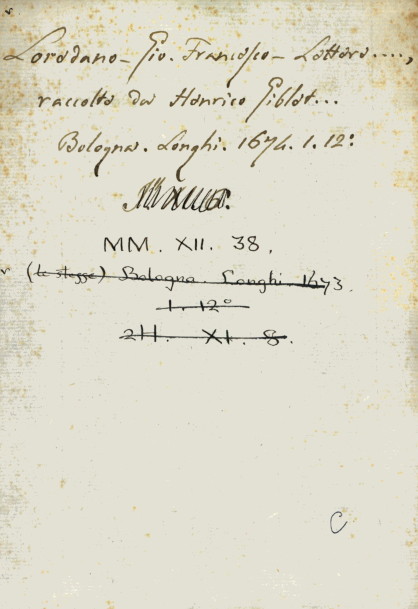 Loredano - Gio. Francesco - Lettere....,
raccolte da Henrico Giblet...
Bologna. Longhi. 1674. 1. 12º
MM. XII. 38.
(le stesse) Bologna. Longhi. 1673.
1. 12º
XI. 8.
C